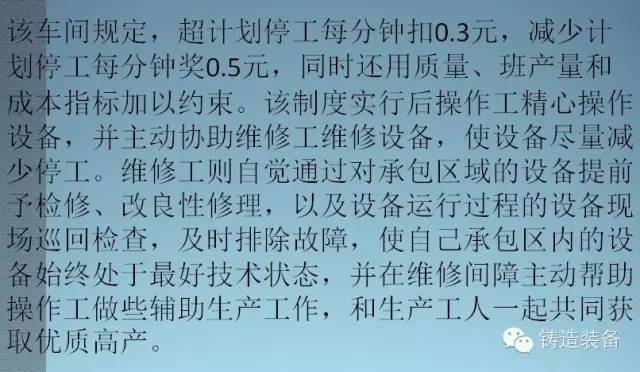 该车间规定，超计划停工每分钟扣0.3元，减少计
划停工每分钟奖0.5元，同时还用质量、班产量和
成本指标加以约束。该制度实行后操作工精心操作
设备，并主动协助维修工维修设备，使设备尽量减
少停工。维修工则自觉通过对承包区域的设备提前
予检修、改良性修理，以及设备运行过程的设备现
场巡回检查，及时排除故障，使自己承包区内的设
备始终处于最好技术状态，并在维修间障主动帮助
操作工做些辅助生产工作，和生产工人一起共同获
取优质高产。
铸造装备